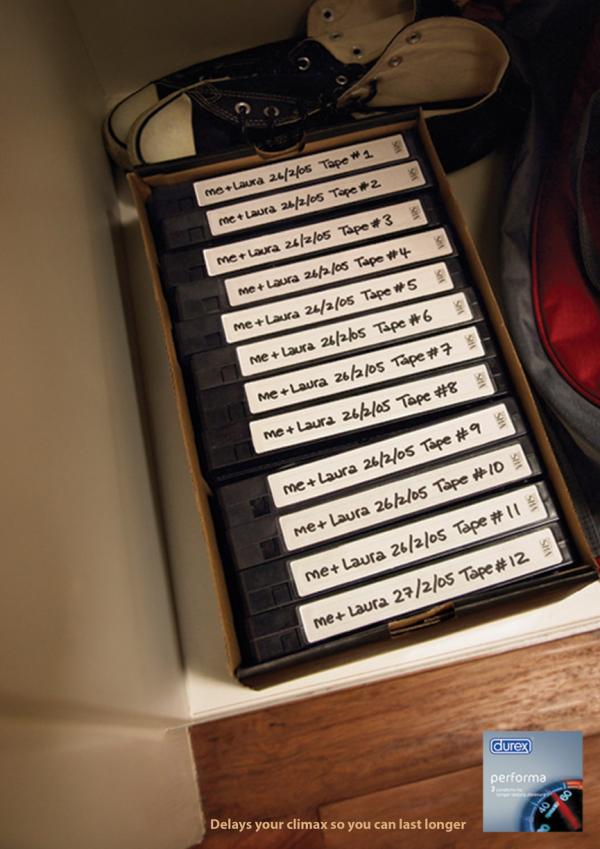 me + Laura 26/2/05 Tape #1 VHS
me + Laura 26/2/05 Tape #2
me + Laura 26/2/05 Tape #3 VHS
me + Laura 26/2/05 Tape #4 VHS
me + Laura 26/2/05 Tape #5 VHS
me + Laura 26/2/05 Tape #6 VHS
me + Laura 26/2/05 Tape #7 VHS
me + Laura 26/2/05 Tape #8 VHS
me + Laura 26/2/05 Tape #9 VHS
me + Laura 26/2/05 Tape #10 VHS
me + Laura 26/2/05 Tape #11 VHS
me + Laura 27/2/05 Tape #12 VHS
durex
performa
3
40
60
Delays your climax so you can last longer